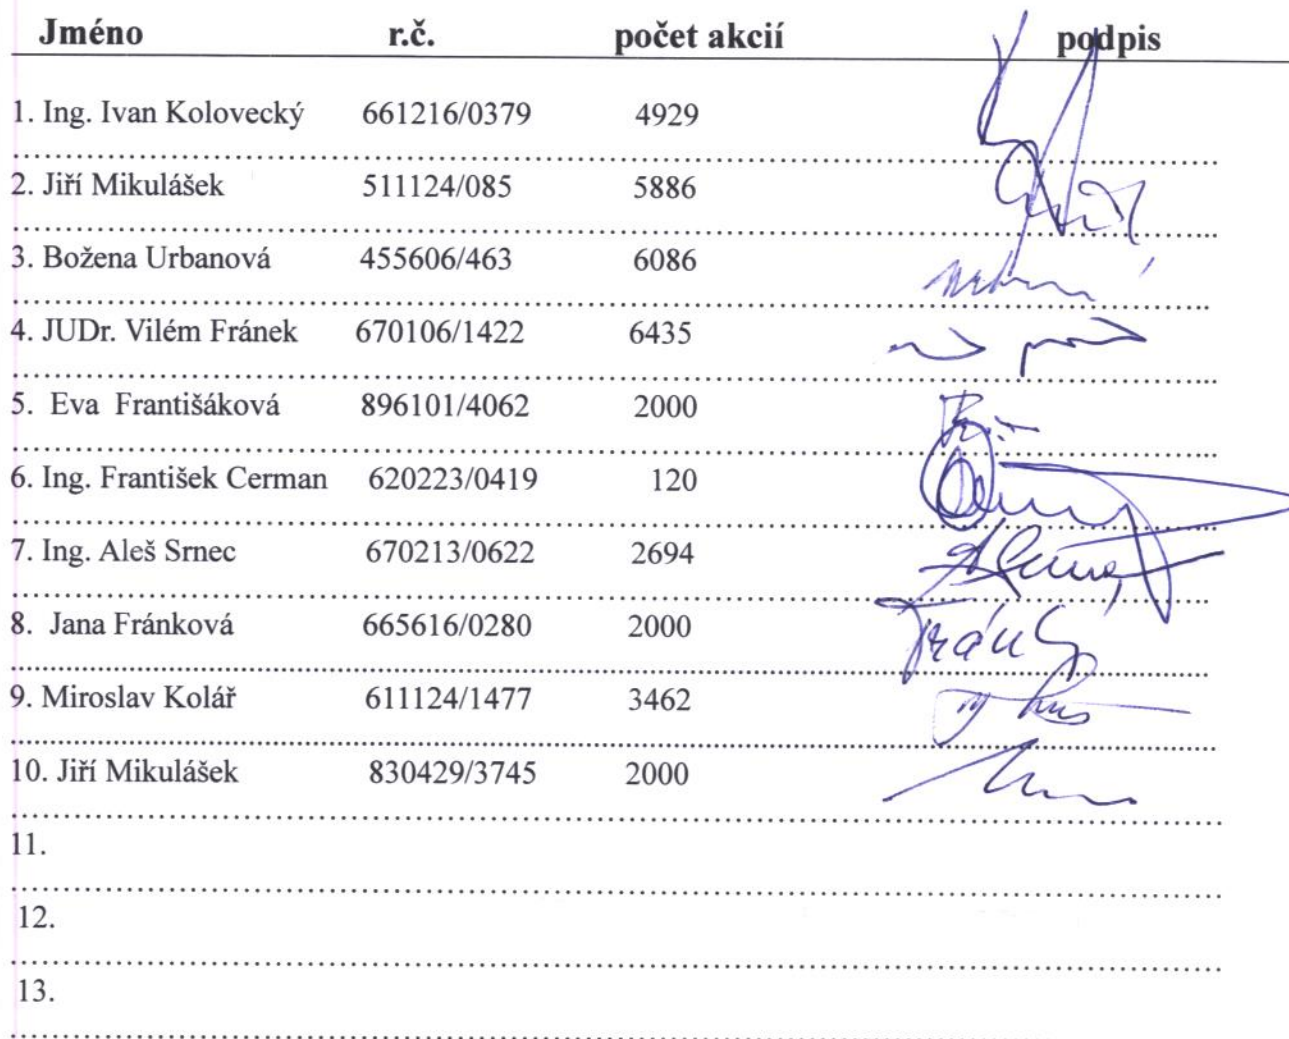 Jméno r.č. počet akcií podpis
1. Ing. Ivan Kolovecký 661216/0379 4929
2. Jiří Mikulášek 511124/085 5886
3. Božena Urbanová 455606/463 6086
4. JUDr. Vilém Fránek 670106/1422 6435
5. Eva Františáková 896101/4062 2000
6. Ing. František Cerman 620223/0419 120
7. Ing. Aleš Srnec 670213/0622 2694
8. Jana Fránková 665616/0280 2000
9. Miroslav Kolář 611124/1477 3462
10. Jiří Mikulášek 830429/3745 2000
11.
12.
13.